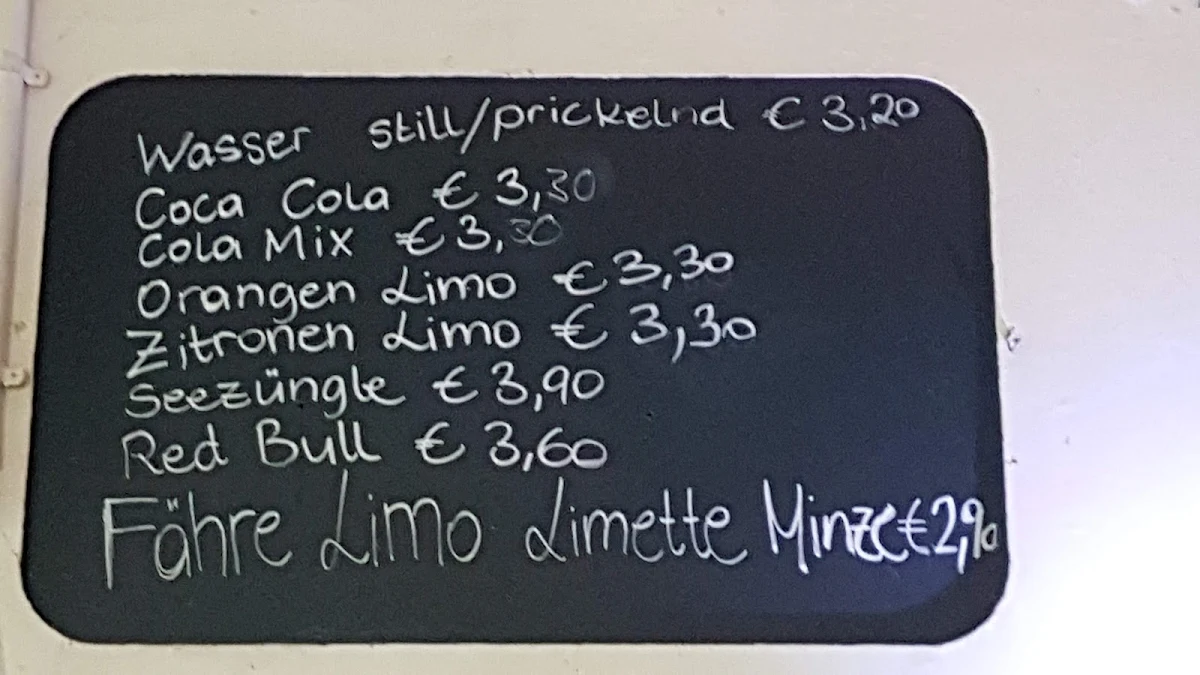 Wasser still/prickelnd € 3,20
Coca Cola € 3,30
Cola Mix € 3,30
Orangen Limo € 3,30
Zitronen Limo € 3,30
Seezüngle € 3,90
Red Bull € 3,60
Fähre Limo Limette Minze € 2,90